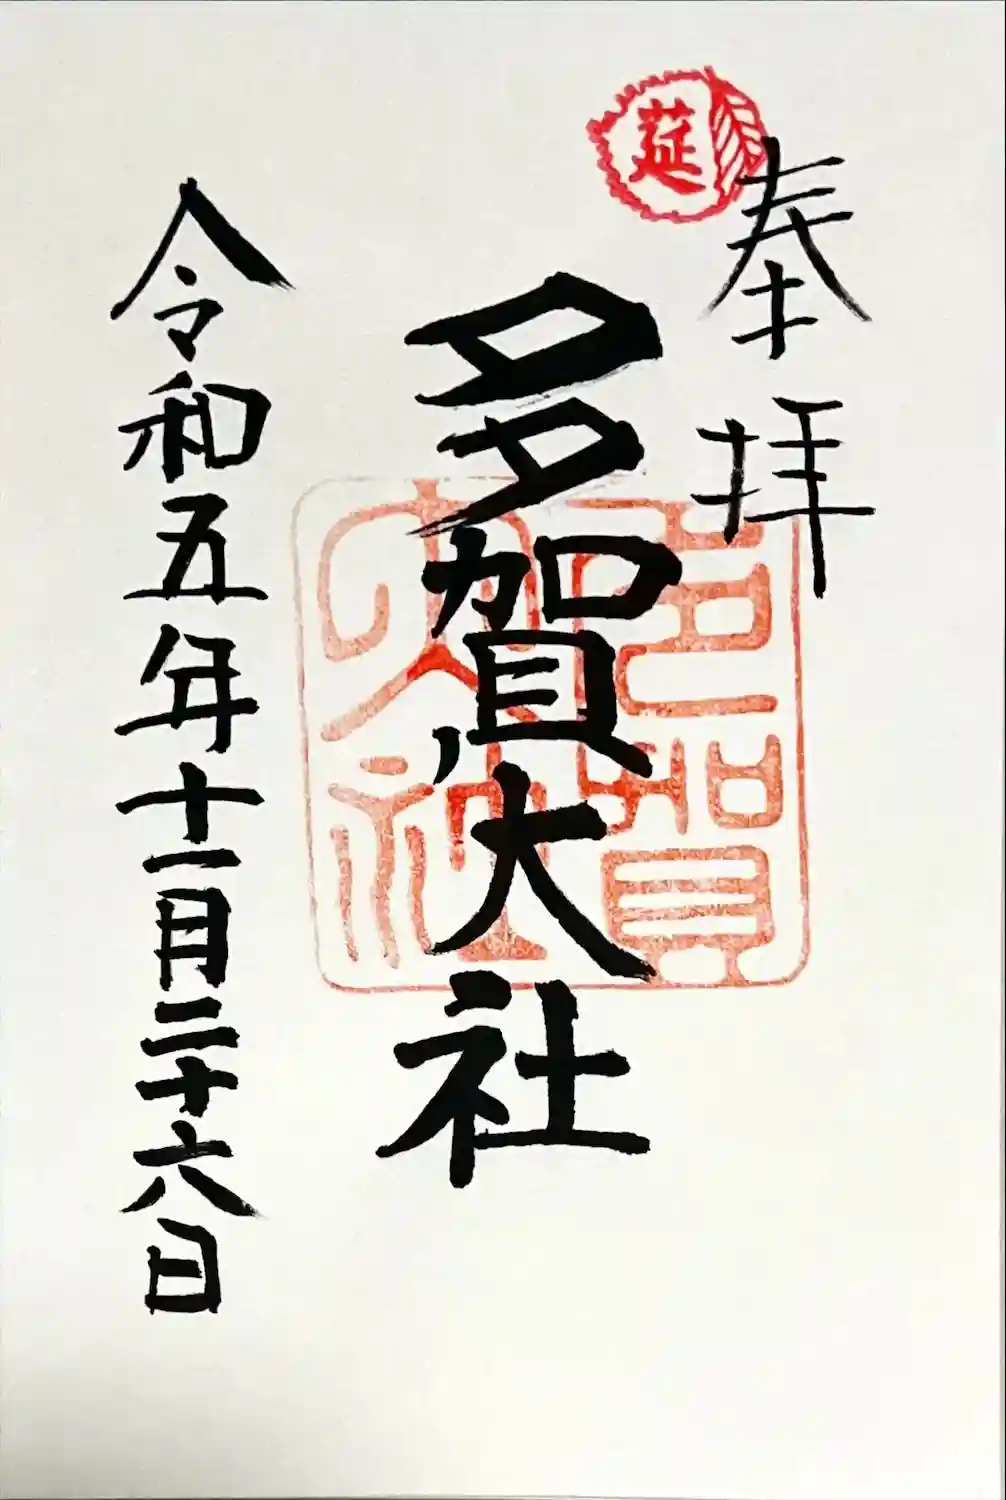 莚
奉拝
多賀大社
多賀大社
令和五年十一月二十六日